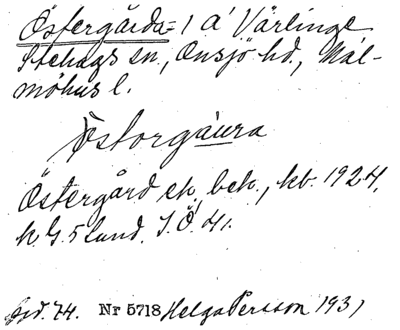 Östergårda = 1 a' Värlinge
Stehags sn, Onsjö hd, Mal-
möhus l.
Östorgaura
Östergård ek. bek., kb. 1924,
k G. 5 Lund. J. Ö. 41.
jfd. 74. Nr 5718 Helga Persson 1931